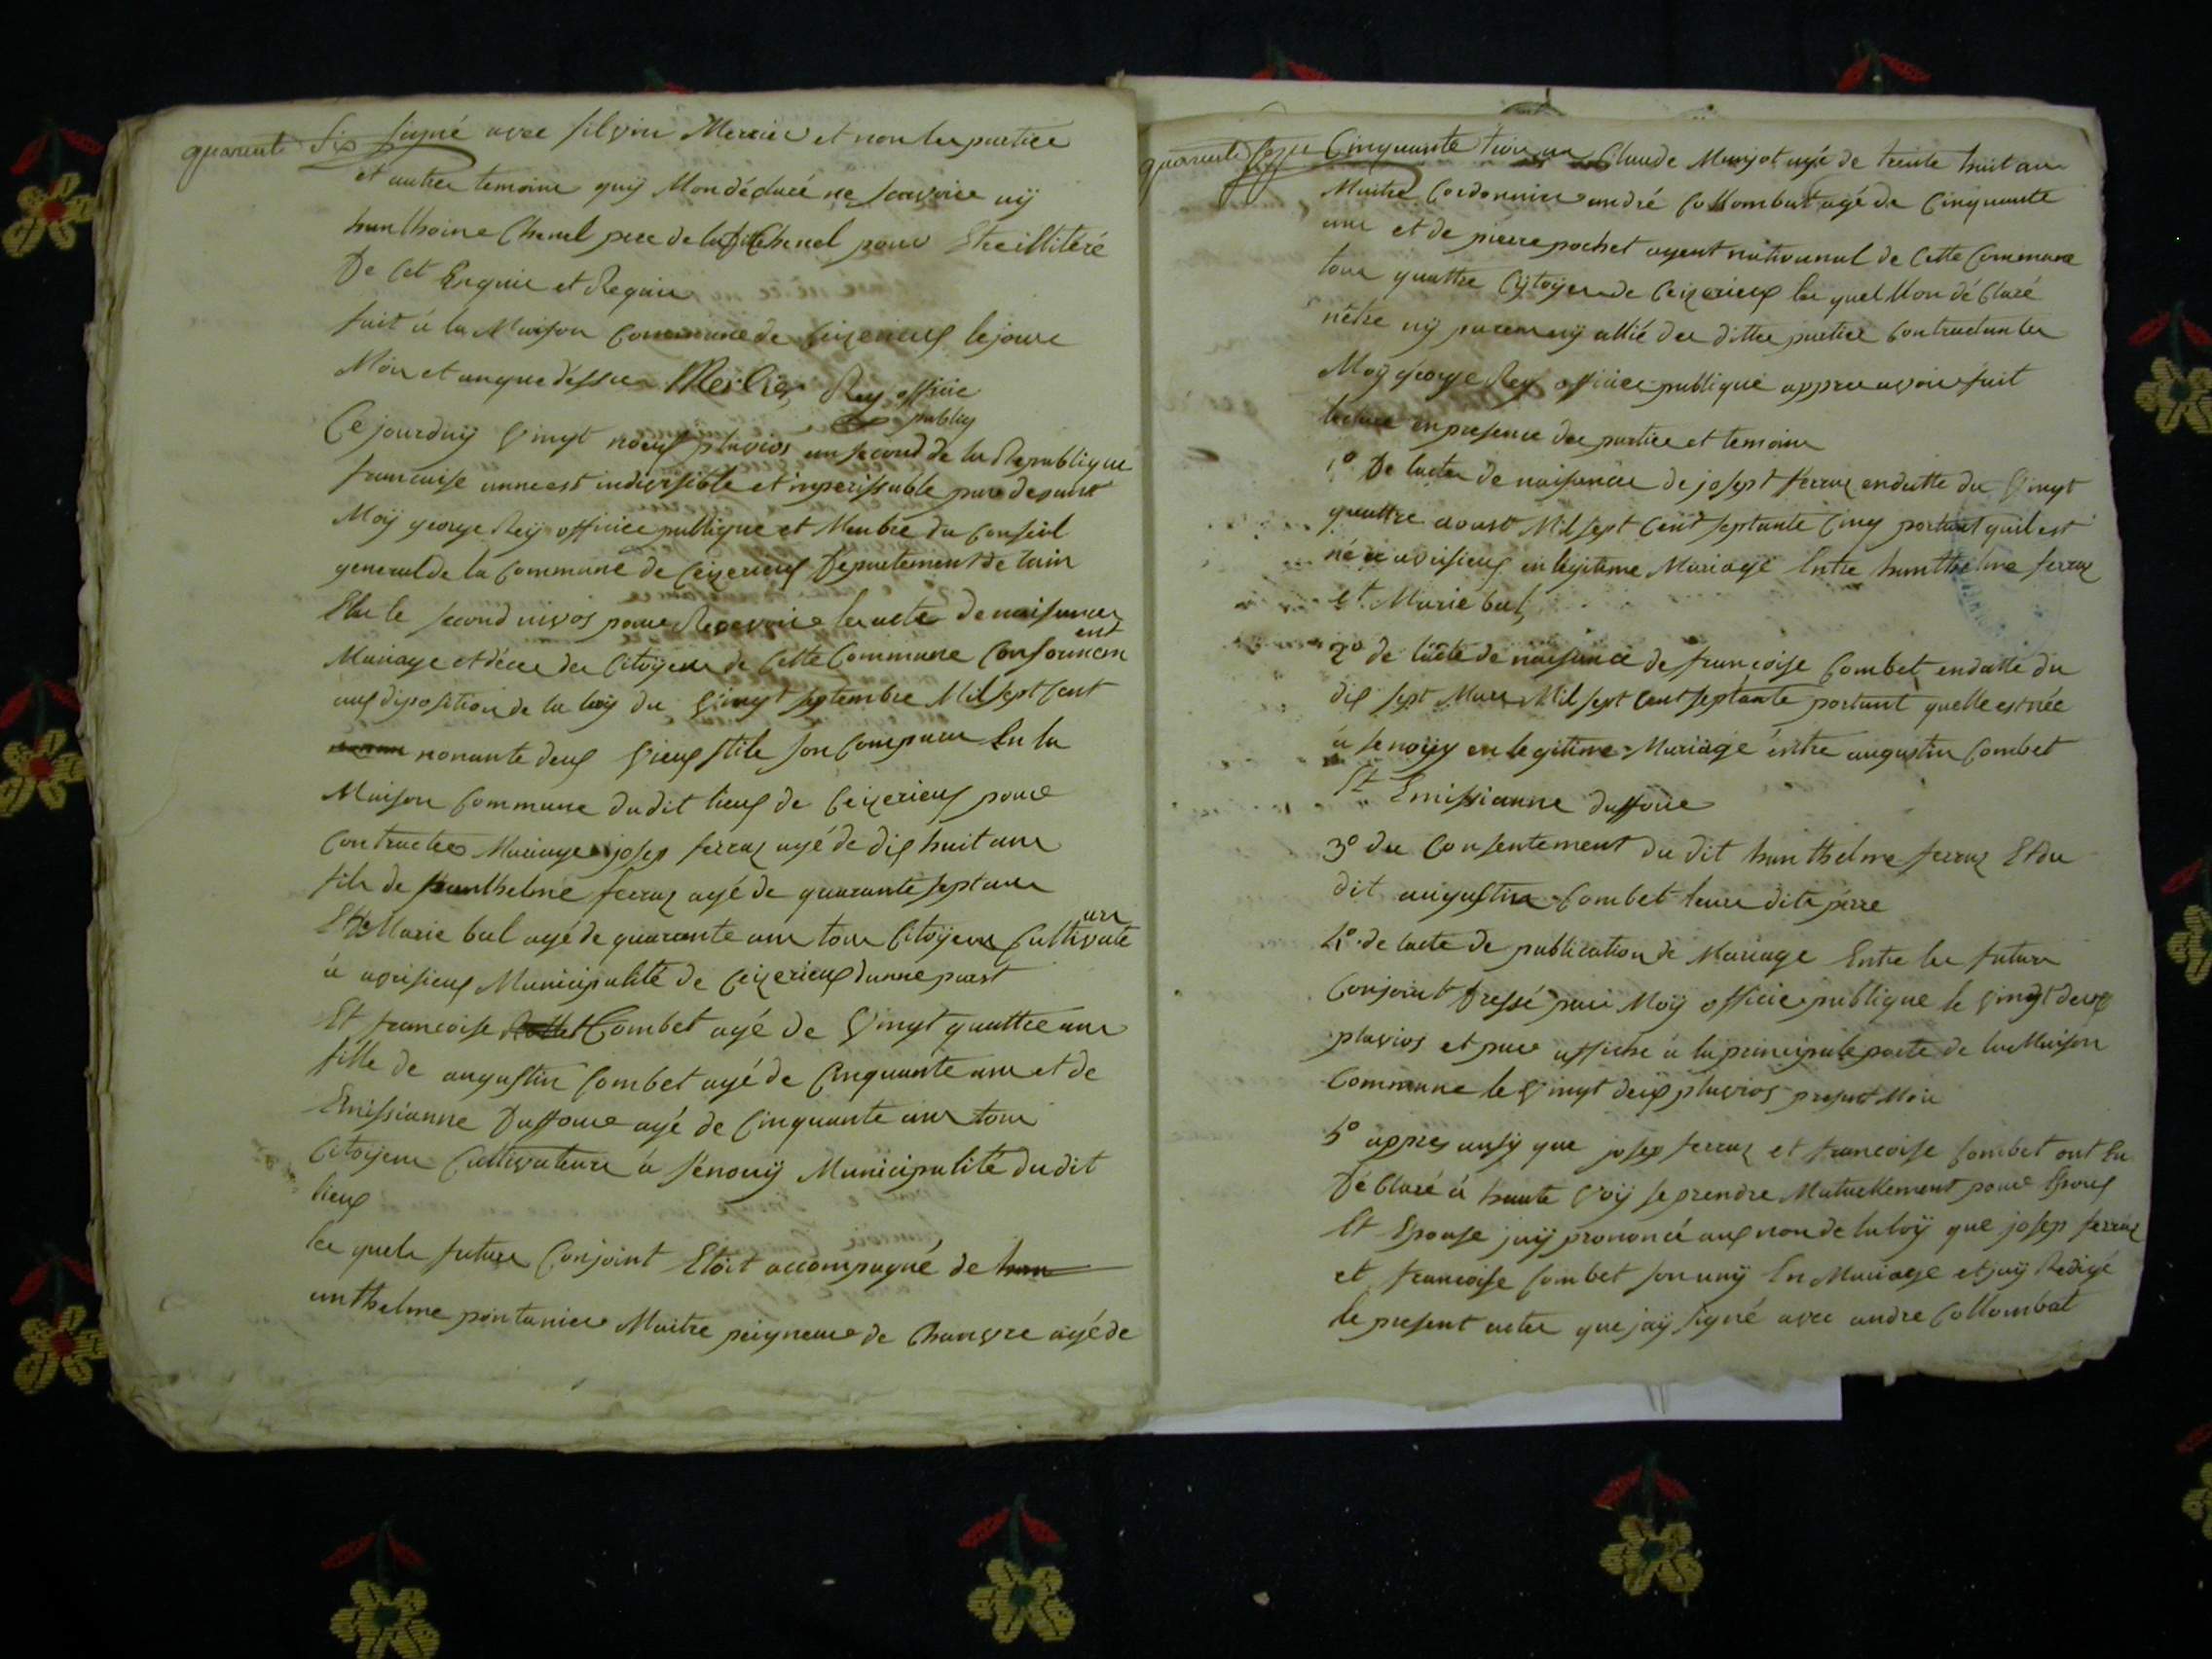 quarante six signé avec silvin Mercier et non les partie
et autre temoins quy Mon déclaré ne scavoire ny
hanthoine Chenel pere de la dite Chenel pour Etre illitéré
De Cet Enquis et Requis
fait à la Maison Commune de Ceizerieux le jour
Mois et an que dessus Mercier Rey officie
publiq
Ce jourduy vingt noeuf pluvios an second de la Republique
francaise unne est indivisible et inperissable pardevant
Moÿ george Reÿ officiee publique et Menbre du Conseil
general de la Commune de Ceizerieux Departement de lain
Elu le second nivos pour Recevoir les acte de naisance
Mariage et décee des Citoÿens de Cette Commune Conformem
ent
aux disposition de la loÿ du vingt septembre Mil sept cent
nonante deux vieux stile son Comparu En la
Maison Commune dudit lieux de Ceizerieux pour
Contracter Mariage josep ferraz agé de dix huit ans
fils de hanthelme ferraz agé de quarante sept ans
Et de Marie bal agé de quarante ans tous Citoÿens Cultivate
urs
à avrisieux Municipalité de Ceizerieux dunne part
Et francoise Combet agé de vingt quattre ans
fille de augustin Combet agé de Cinquante ans et de
Emissianne Duffour agé de Cinquante ans tous
Citoÿens Cultivateurs à sénouÿ Municipalité dudit
lieux
les quels futurs Conjoint Etoit accompagné de han
anthelme pontanier Maitre peigneur de Chanvre agé de
quarante sept Cinquante trois ans Claude Marjot agé de trente huit ans
Maitre Cordonnier andré Collombat agé de Cinquante
ans et de pierre pochet agent nationnal de Cette Commune
tous quattre Cÿtoÿens de Ceizerieux les quel Mon déClaré
nêtre nÿ parens nÿ allié des dittes parties Contractantes
Moÿ géorge Reÿ officiee publique appres avoir fait
lecture en presence des parties et temoins
1º De lacte de naisance de josept ferraz en datte du vingt
quattre aoust Mil sept Cent septante Cinq portant quil est
né a avrisieux en légitime Mariage Entre hanthelme ferraz
et Marie bal
2º de lacte de naisance de francoise Combet en datte du
dix sept Mars Mil sept Cent septante portant quelle est née
à senoÿ en legitime Mariage éntre augustin Combet
Et Emissianne duffour
3º du Consentement du dit hanthelme ferraz Et du
dit augustin Combet leurs dits père
4º de lacte de publication de Mariage Entre les futurs
Conjoint Dressé par Moÿ officie publique le vingt deux
pluvios et par affiche à la principale porte de la Maison
Commune le vingt deux pluvios present Mois
5º appres ausÿ que josep ferraz et francoise Combet ont Eu
DéClaré à haute voÿ se prendre Mutuellement pour Epoux
Et Epouse jaÿ prononcé aux non de la loÿ que josep ferraz
et francoise Combet son unÿ En Mariage et jaÿ Redigé
le present acte que jaÿ signé avec andre Collombat